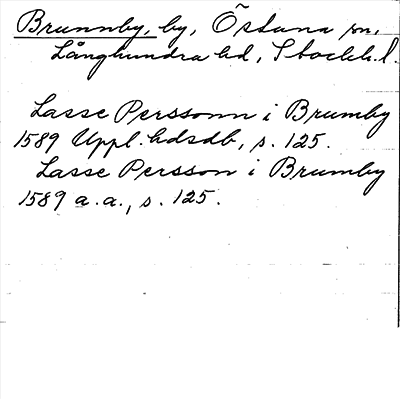 Brunnby, by, Östuna sn,
Långhundra hd, Stockh. l.
Lasse Perssonn i Brumby
1589 Uppl. hdsdb, s. 125.
Lasse Persson i Brumby
1589 a.a., s. 125.